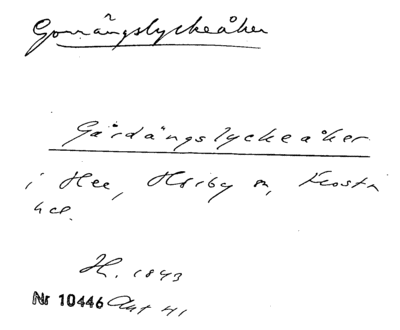 Gorrängslyckeåker
Gårdängslyckeåker
i Hee, Hörby sn, Frosta
hd.
H. 1843
Nr 10446 Akt 41